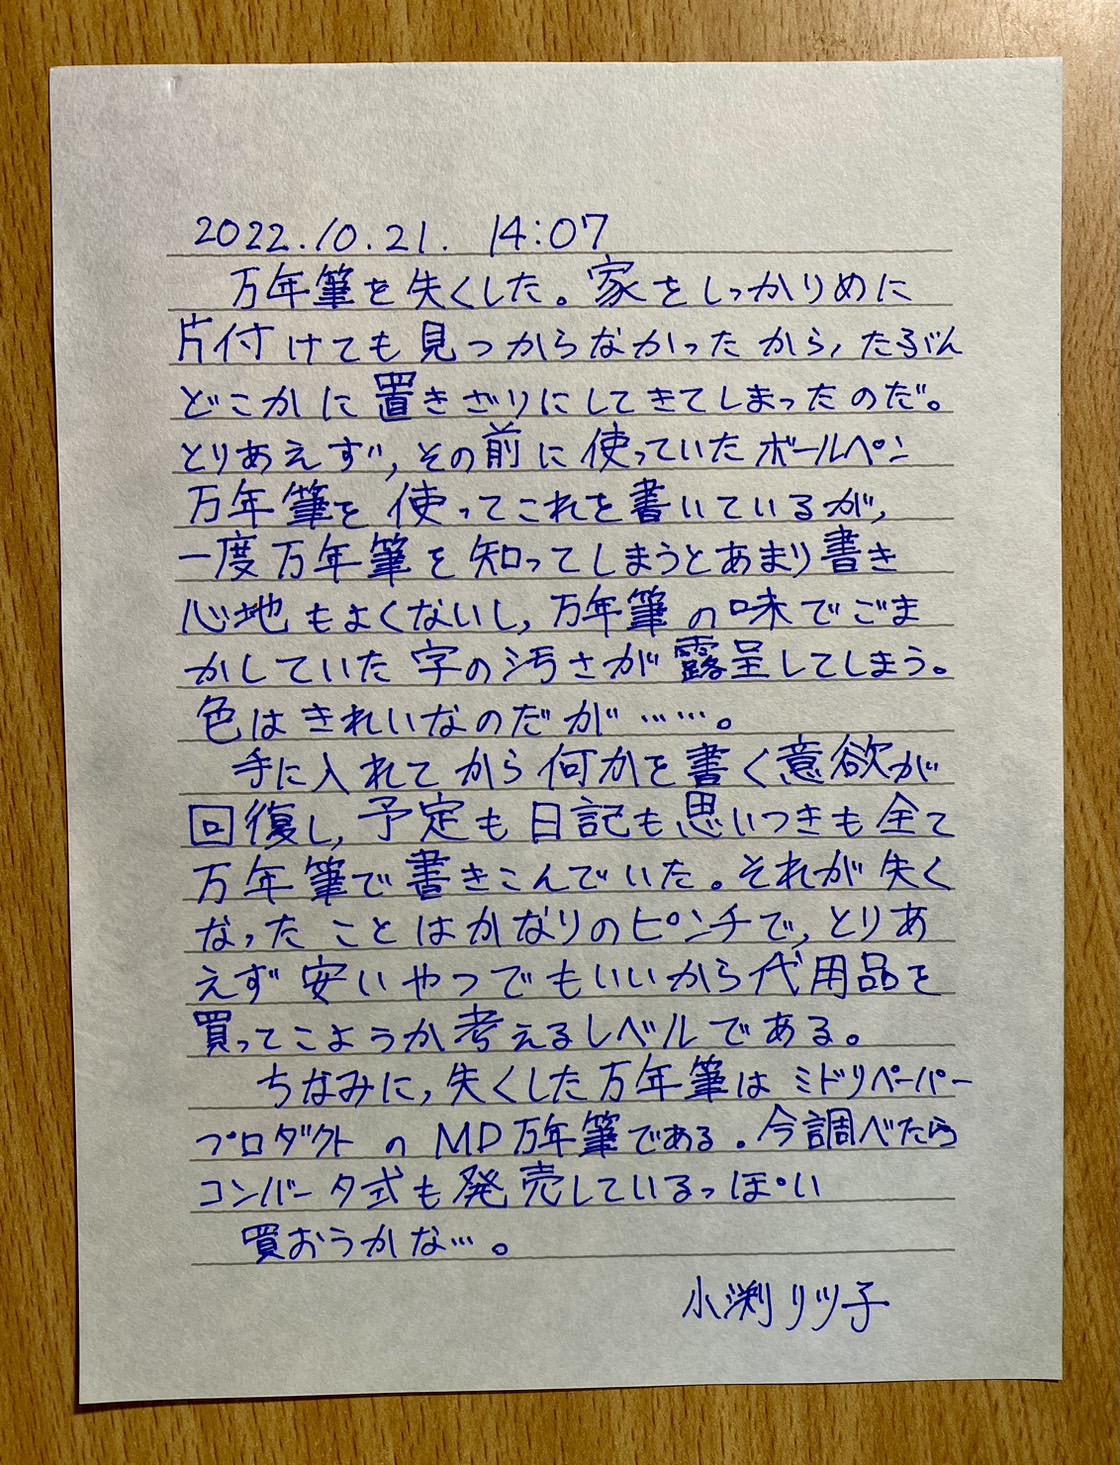 2022.10.21. 14:07
万年筆を失くした。家をしっかりめに
片付けても見つからなかったから、たぶん
どこかに置きざりにしてきてしまったのだ。
とりあえず、その前に使っていたボールペン
万年筆を使ってこれを書いているが、
一度万年筆を知ってしまうとあまり書き
心地もよくないし、万年筆の味でごま
かしていた字の汚さが露呈してしまう。
色はきれいなのだが……。
手に入れてから何かを書く意欲が
回復し、予定も日記も思いつきも全て
万年筆で書きこんでいた。それが失く
なったことはかなりのピンチで、とりあ
えず安いやつでもいいから代用品を
買ってこようか考えるレベルである。
ちなみに、失くした万年筆はミドリペーパー
プロダクトのMD万年筆である。今調べたら
コンバータ式も発売しているっぽい
買おうかな…。
小渕リツ子